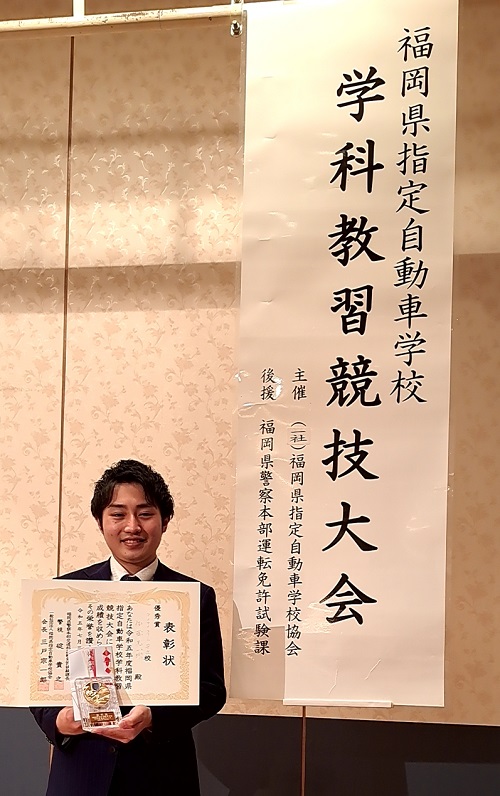 福岡県指定自動車学校
学科教習競技大会
主催 (一社)福岡県指定自動車学校協会
後援 福岡県警察本部運転免許試験課
表彰状
優秀賞
校
殿
あなたは令和五年度福岡県
指定自動車学校学科教習
競技大会に
成績を収めら
その栄誉を讃
令和五年七月
警視 碇 貴之
会長 三戸 宗一郎